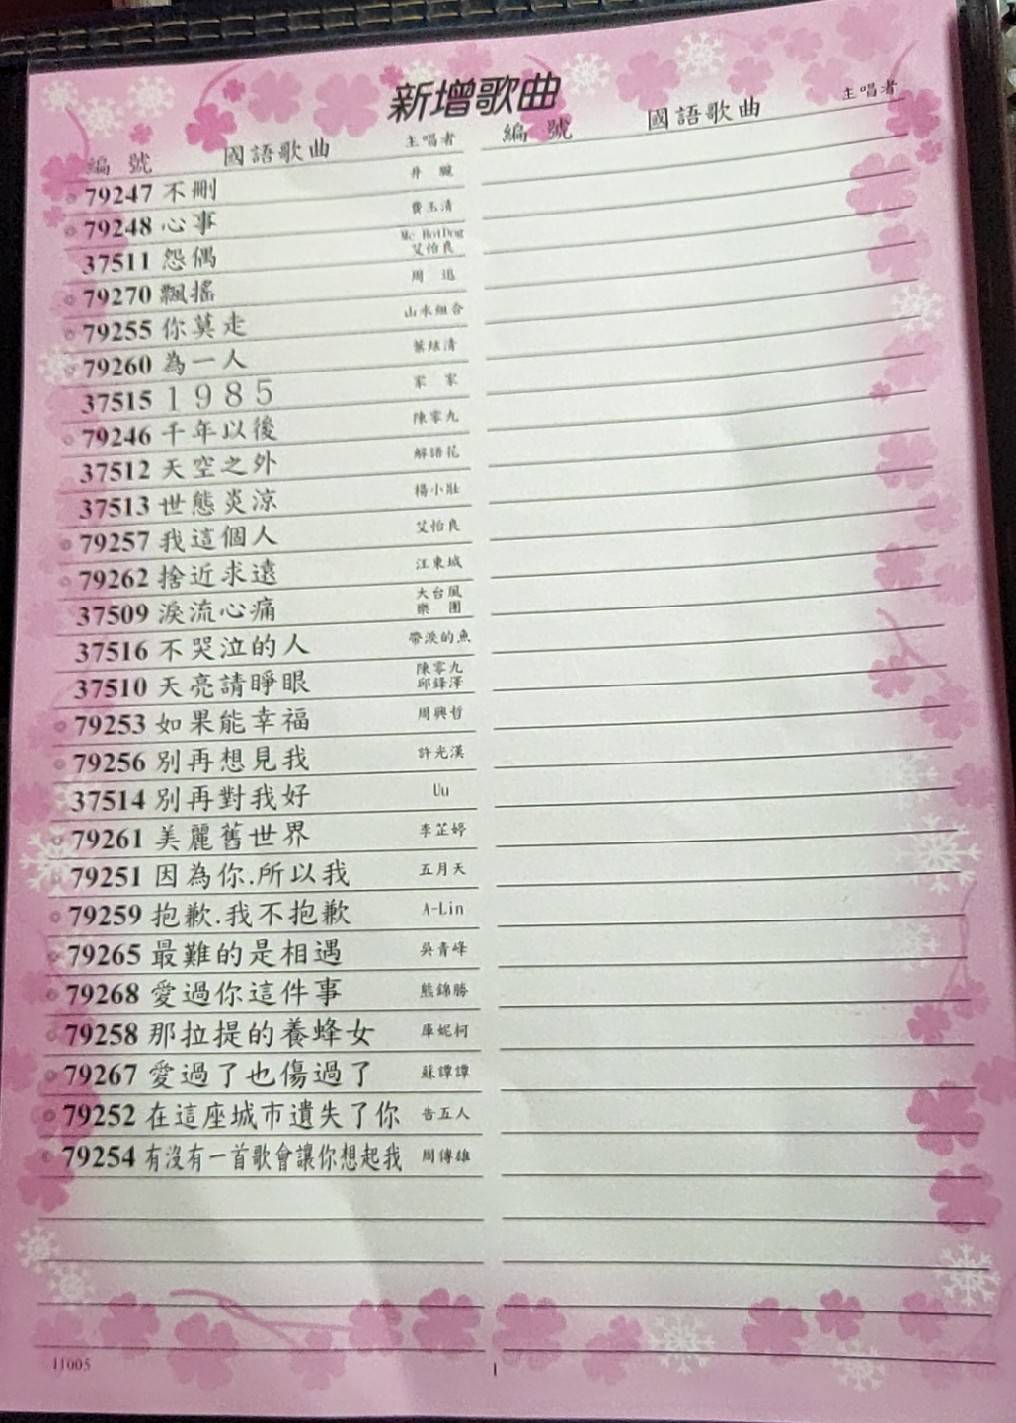 新增歌曲
編 號 國語歌曲 主唱者 編 號 國語歌曲 主唱者
79247 不刪 井 朧
79248 心事 費玉清
37511 怨偶 Mc HotDog 艾怡良
79270 飄搖 周 迅
79255 你莫走 山水組合
79260 為一人 葉炫清
37515 1985 家 家
79246 千年以後 陳零九
37512 天空之外 解語花
37513 世態炎涼 楊小壯
79257 我這個人 艾怡良
79262 捨近求遠 汪東城
37509 淚流心痛 大台風樂團
37516 不哭泣的人 帶淚的魚
37510 天亮請睜眼 陳零九 邱鋒澤
79253 如果能幸福 周興哲
79256 別再想見我 許光漢
37514 別再對我好 Uu
79261 美麗舊世界 李芷婷
79251 因為你.所以我 五月天
79259 抱歉.我不抱歉 A-Lin
79265 最難的是相遇 吳青峰
79268 愛過你這件事 熊錦勝
79258 那拉提的養蜂女 庫妮柯
79267 愛過了也傷過了 蘇譚譚
79252 在這座城市遺失了你 告五人
79254 有沒有一首歌會讓你想起我 周傳雄
11005
1